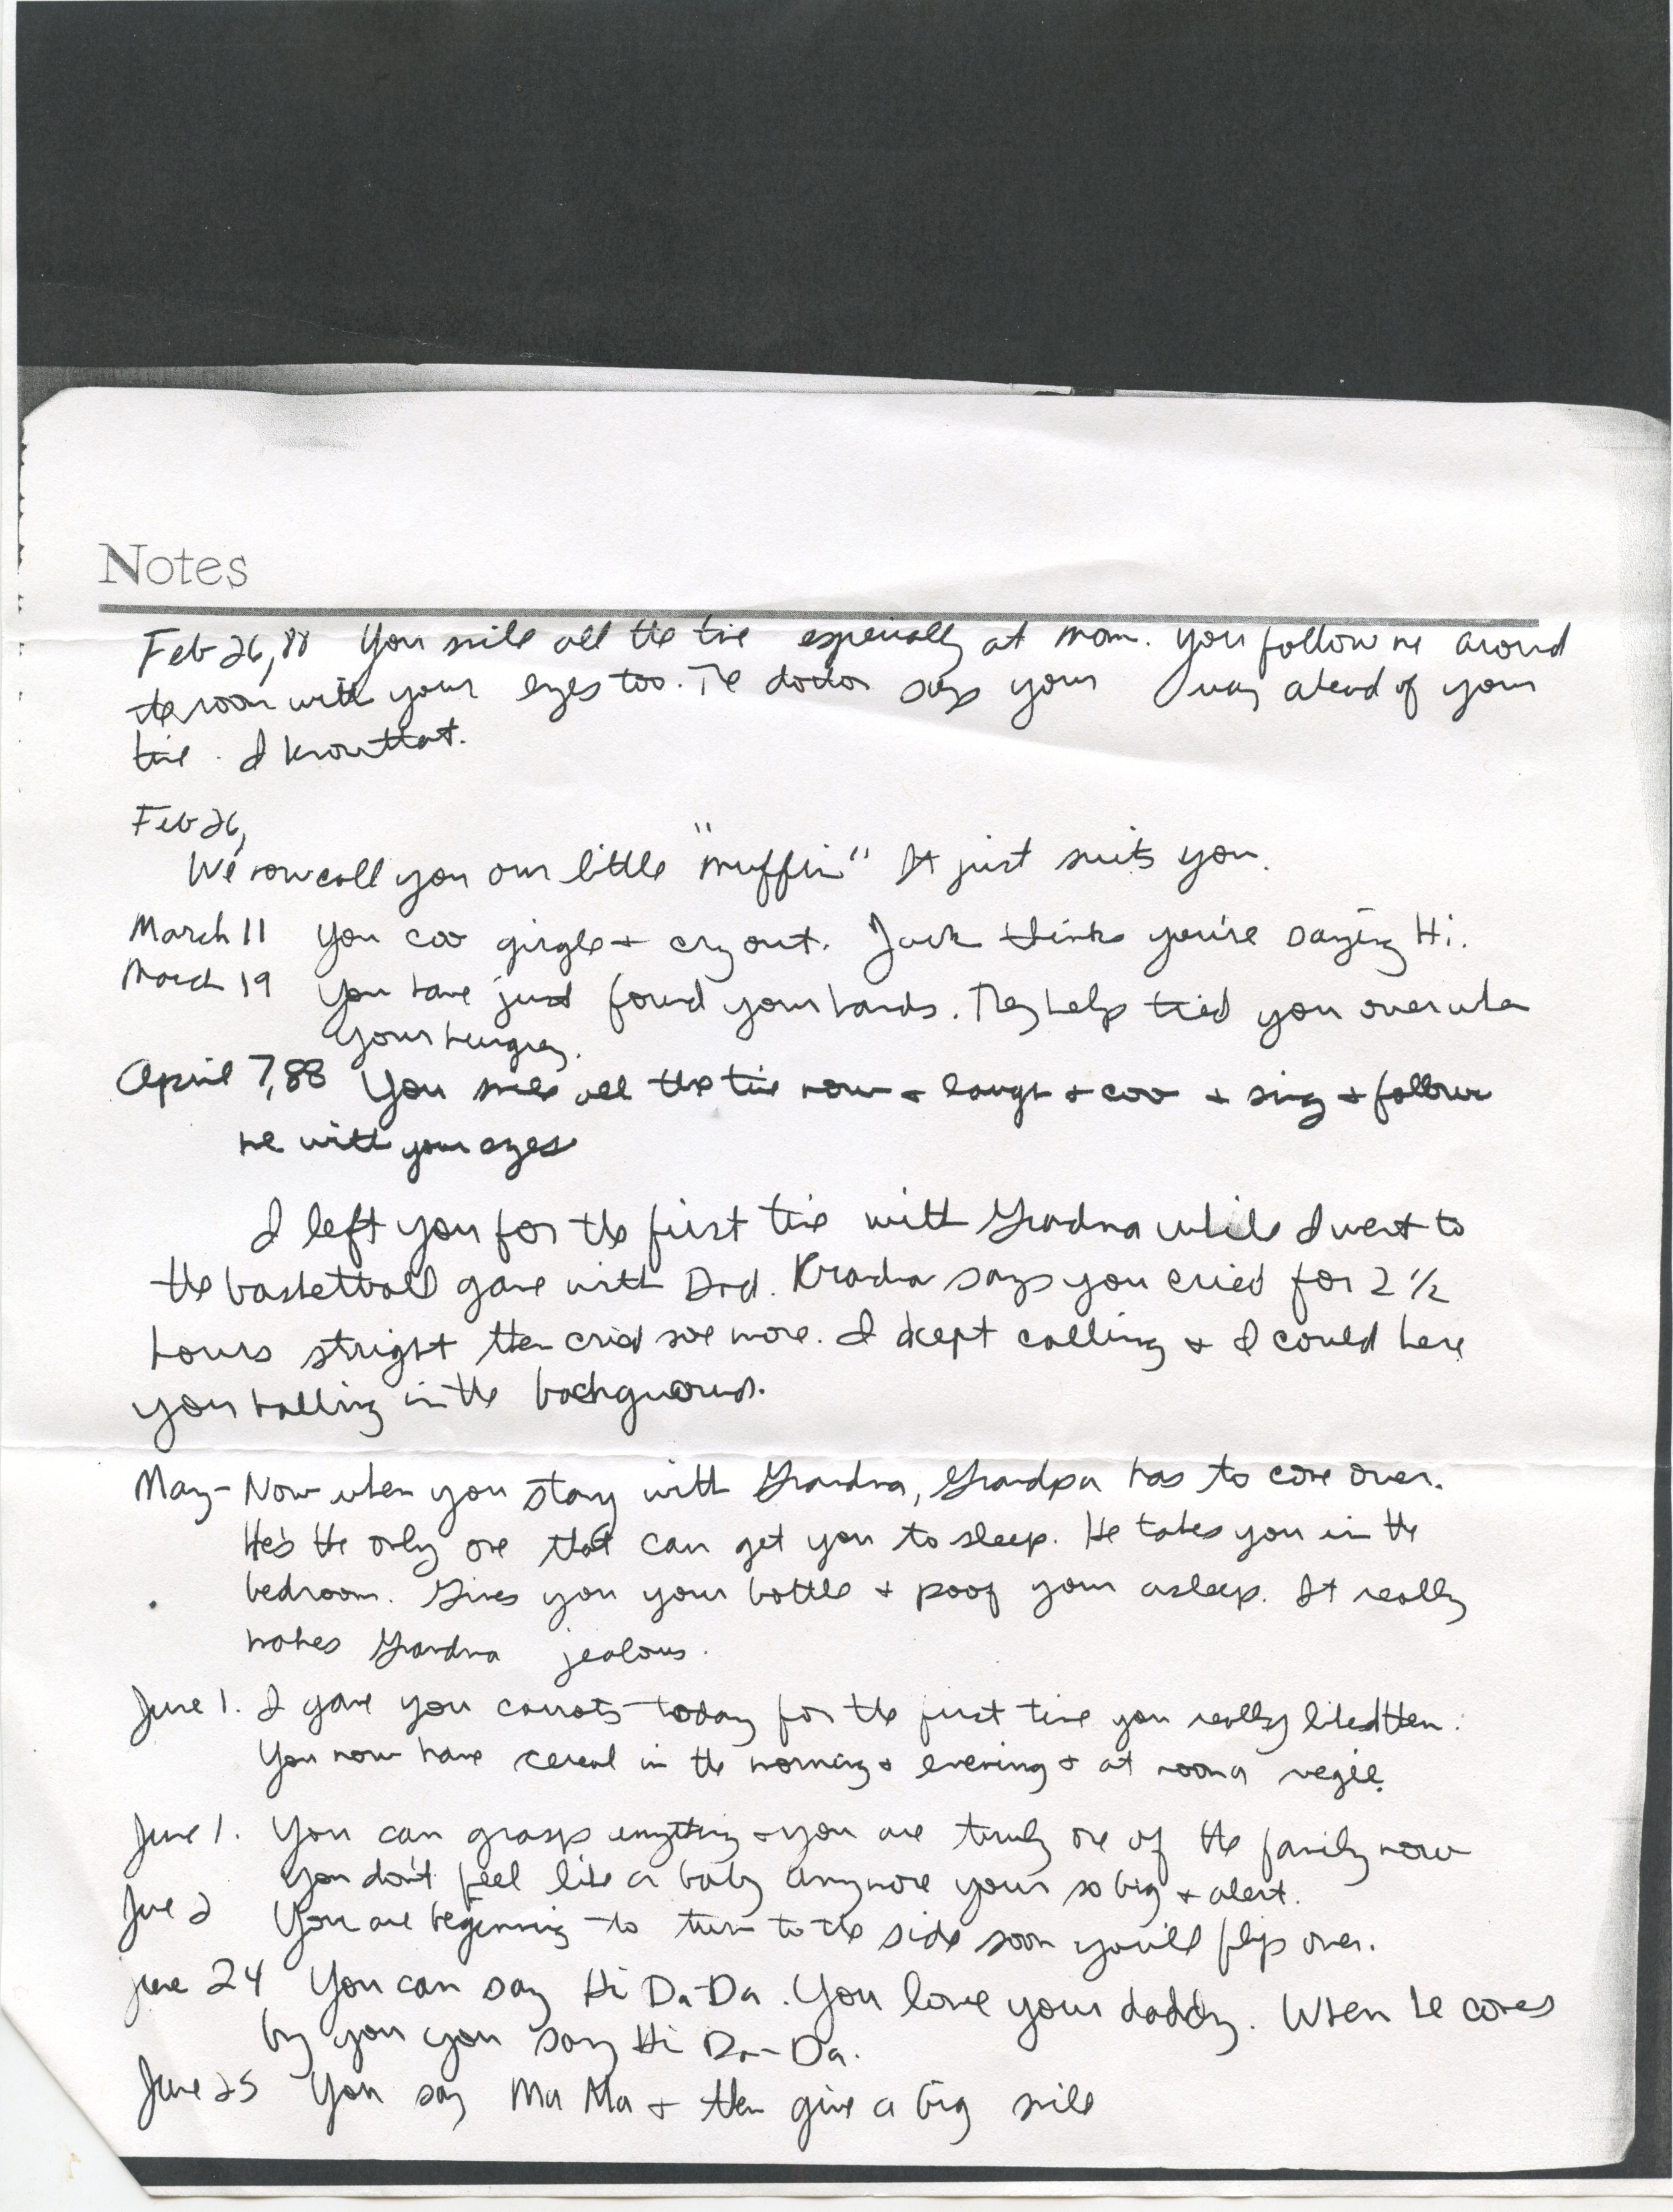 Notes
Feb 26, 88 You smile all the time especially at mom. You follow me around
the room with your eyes too. The doctor says your way ahead of your
time. I know that.
Feb 26,
We now call you our little "muffin" It just suits you.
March 11 You coo girgle + cry out. Jack thinks you're saying Hi.
March 19 You have just found your hands. They help tied you over when
your hungry.
April 7, 88 You smile all the time now + laugh + coo + sing + follow
me with your eyes
I left you for the first time with Grandma while I went to
the basketball game with Dad. Grandma says you cried for 2 1/2
hours stright then cried some more. I kept calling & I could here
you balling in the background.
May - Now when you stay with Grandma, Grandpa has to come over.
He's the only one that can get you to sleep. He takes you in the
bedroom. Gives you your bottle + poof your asleep. It really
makes Grandma jealous.
June 1. I gave you carrots today for the first time you really liked them.
You now have cereal in the morning & evening & at noon a vegie.
June 1. You can grasp anything + you are truly one of the family now
You don't feel like a baby anymore your so big + alert.
June 2 You are beginning to turn to the side soon you'll flip over.
June 24 You can say Hi Da-Da. You love your daddy. When he comes
by you you say Hi Da-Da.
June 25 You say Ma Ma + then give a big smile